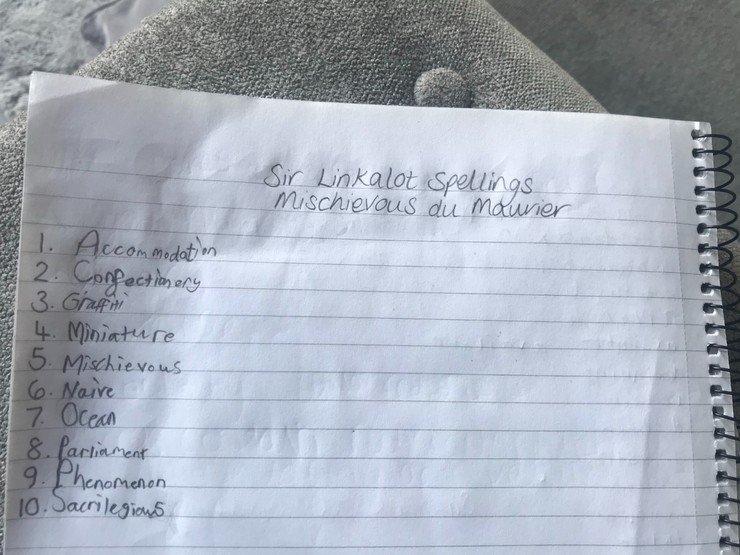 Sir Linkalot Spellings
Mischievous du Maurier
1. Accommodation
2. Confectionery
3. Graffiti
4. Miniature
5. Mischievous
6. Naive
7. Ocean
8. Parliament
9. Phenomenon
10. Sacrilegious